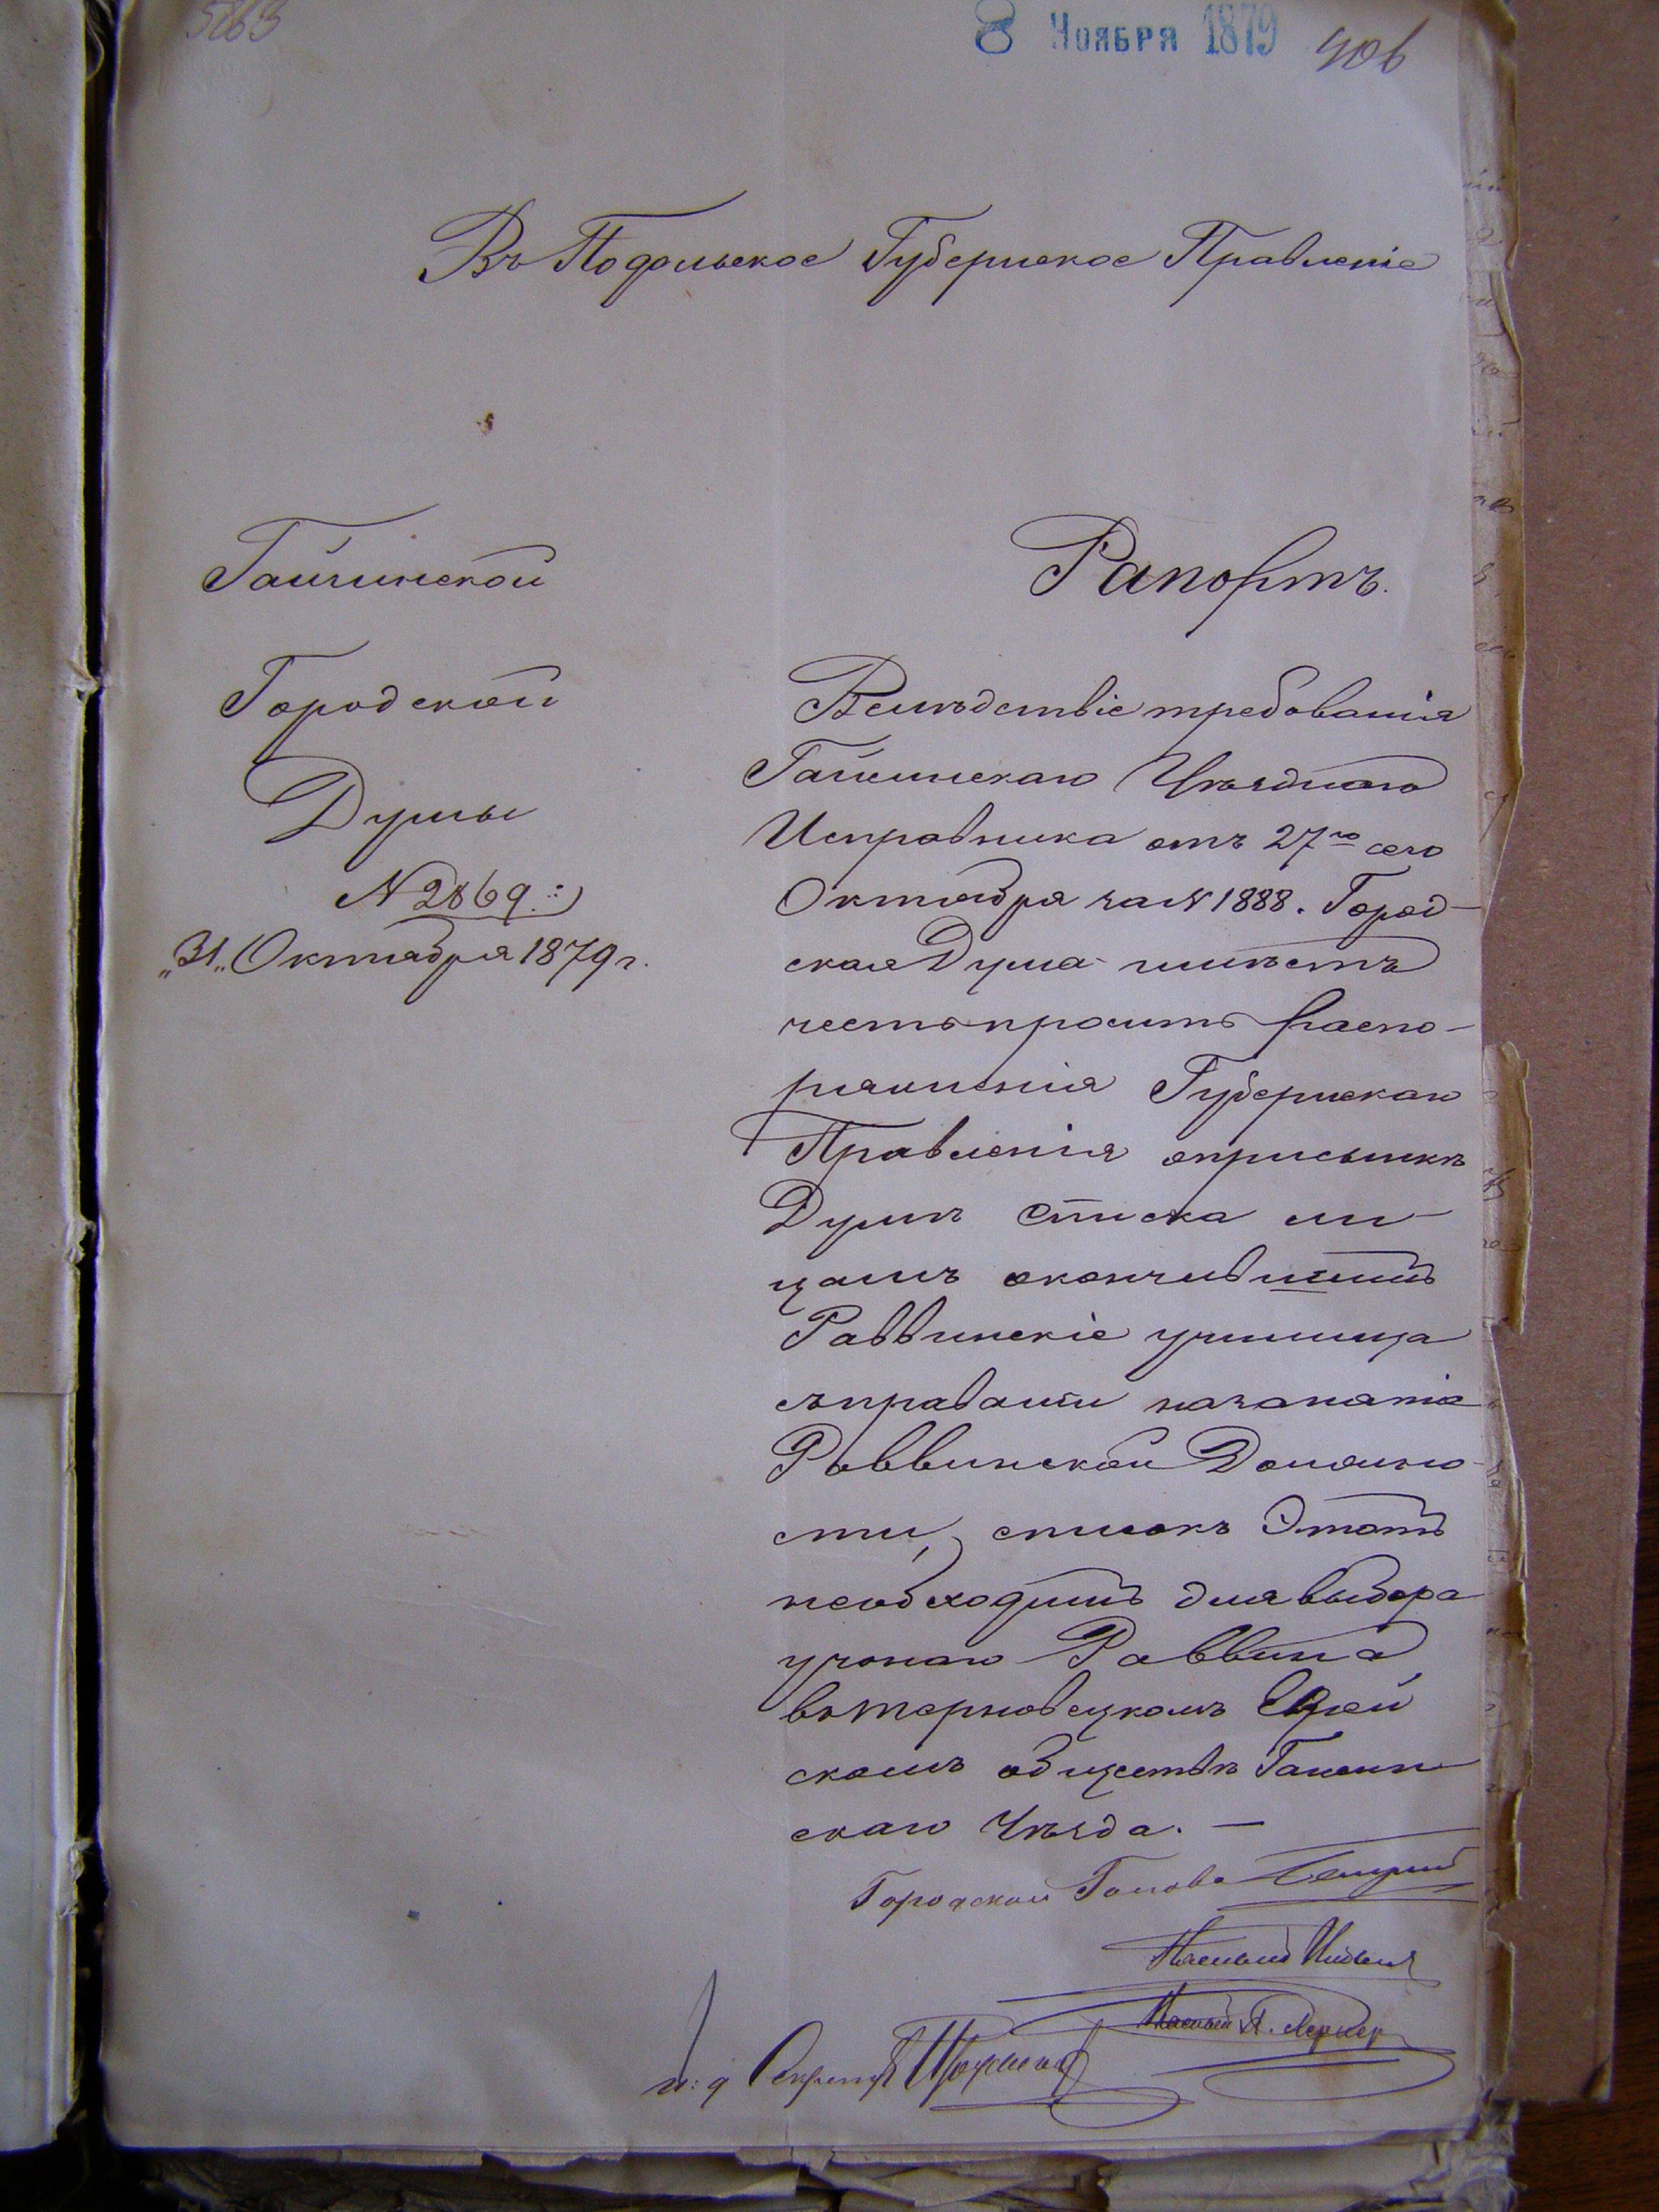 5863
8 Ноября 1879
406
Въ Подольское Губернское Правленіе
Гайсинской
Городской
Думы
N 2869.
„31„ Октября 1879 г.
Рапортъ.
Вслѣдствіе требованія
Гайсинскаго Уѣзднаго
Исправника отъ 27го сего
Октября за N 1888. Город-
ская Дума имѣетъ
честь просить распо-
ряженія Губернскаго
Правленія о присылкѣ
Думѣ списка ли-
цамъ окончившимъ
Раввинскіе училища
съ правами на занятіе
Раввинской Должно-
сти, списокъ этотъ
необходимъ для выбора
ученаго Раввина
въ Терновецкомъ Еврей
скомъ обществѣ Гайсин
скаго Уѣзда. —
Городской Голова
Гласный
Гласный Л. Лернер
И: д Секретаря